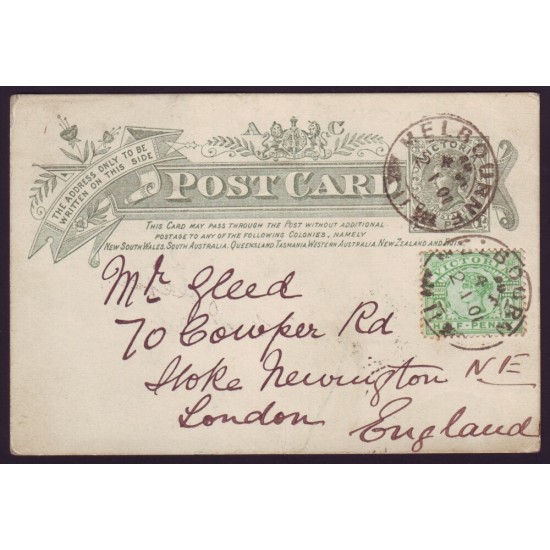 THE ADDRESS ONLY TO BE
WRITTEN ON THIS SIDE
A C
POST CARD
THIS CARD MAY PASS THROUGH THE POST WITHOUT ADDITIONAL
POSTAGE TO ANY OF THE FOLLOWING COLONIES, NAMELY
NEW SOUTH WALES, SOUTH AUSTRALIA, QUEENSLAND, TASMANIA, WESTERN AUSTRALIA, NEW ZEALAND AND
MELBOURNE
VICTORIA
VICTORIA
Mr Gleed
70 Cowper Rd
Stoke Newington NE
London
England